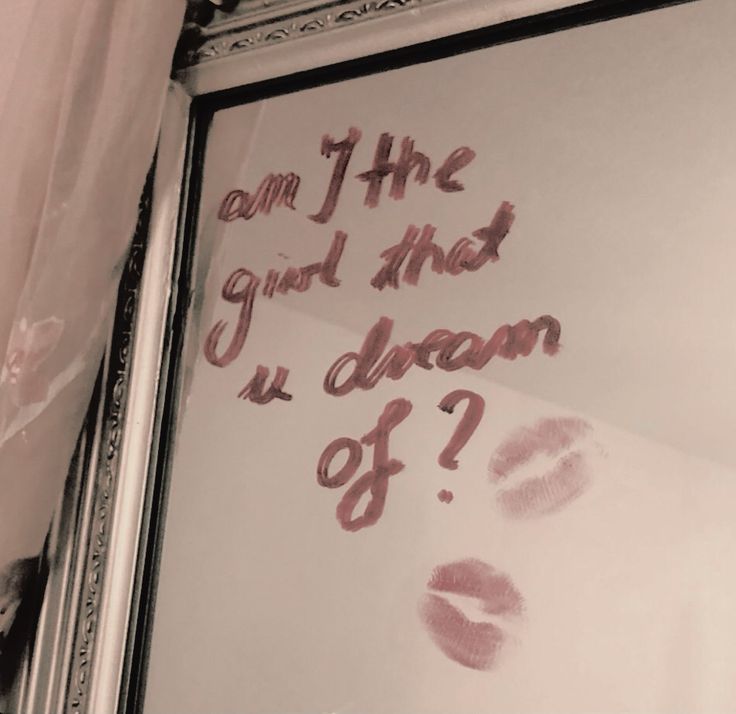 am I the
girl that
u dream
of?